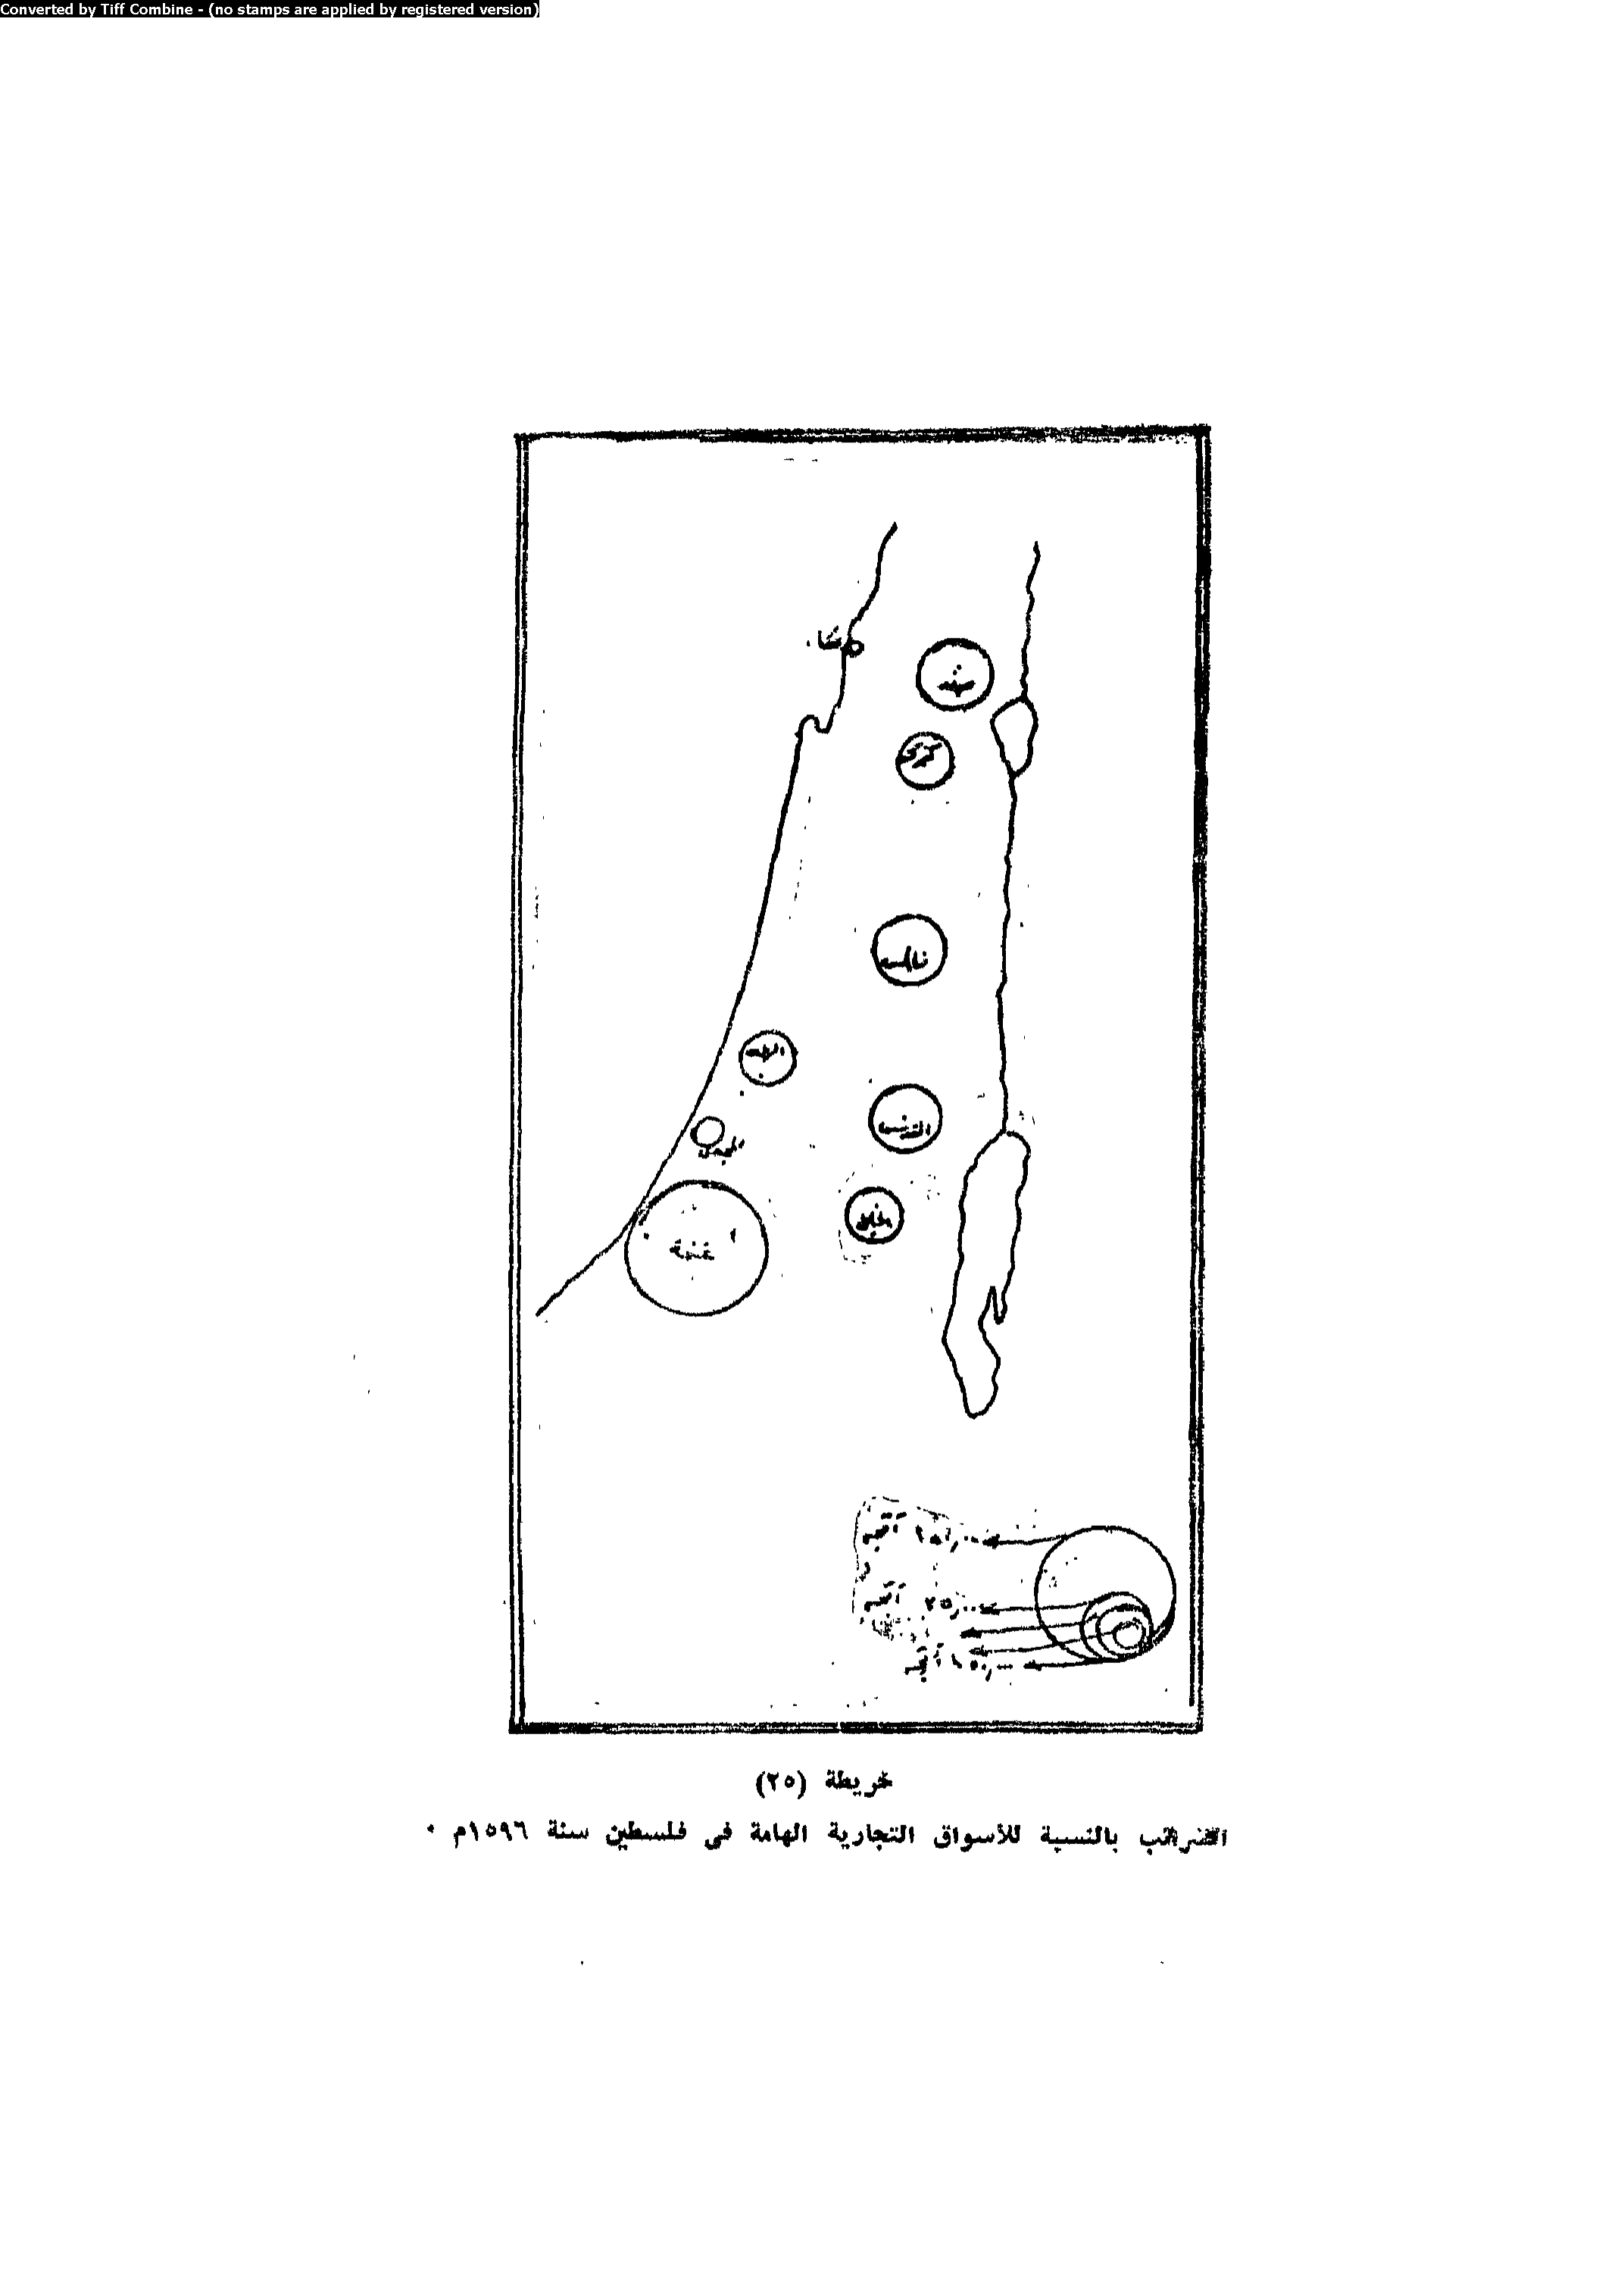 Converted by Tiff Combine - (no stamps are applied by registered version)
عكا
صفد
نابلس
الرملة
القدس
المجدل
الخليل
غزة
آقجه
٢٥,٠٠٠ آقجه
آقجه
خريطة (٢٥)
الضرائب بالنسبة للأسواق التجارية الهامة في فلسطين سنة ١٥٩٦م .